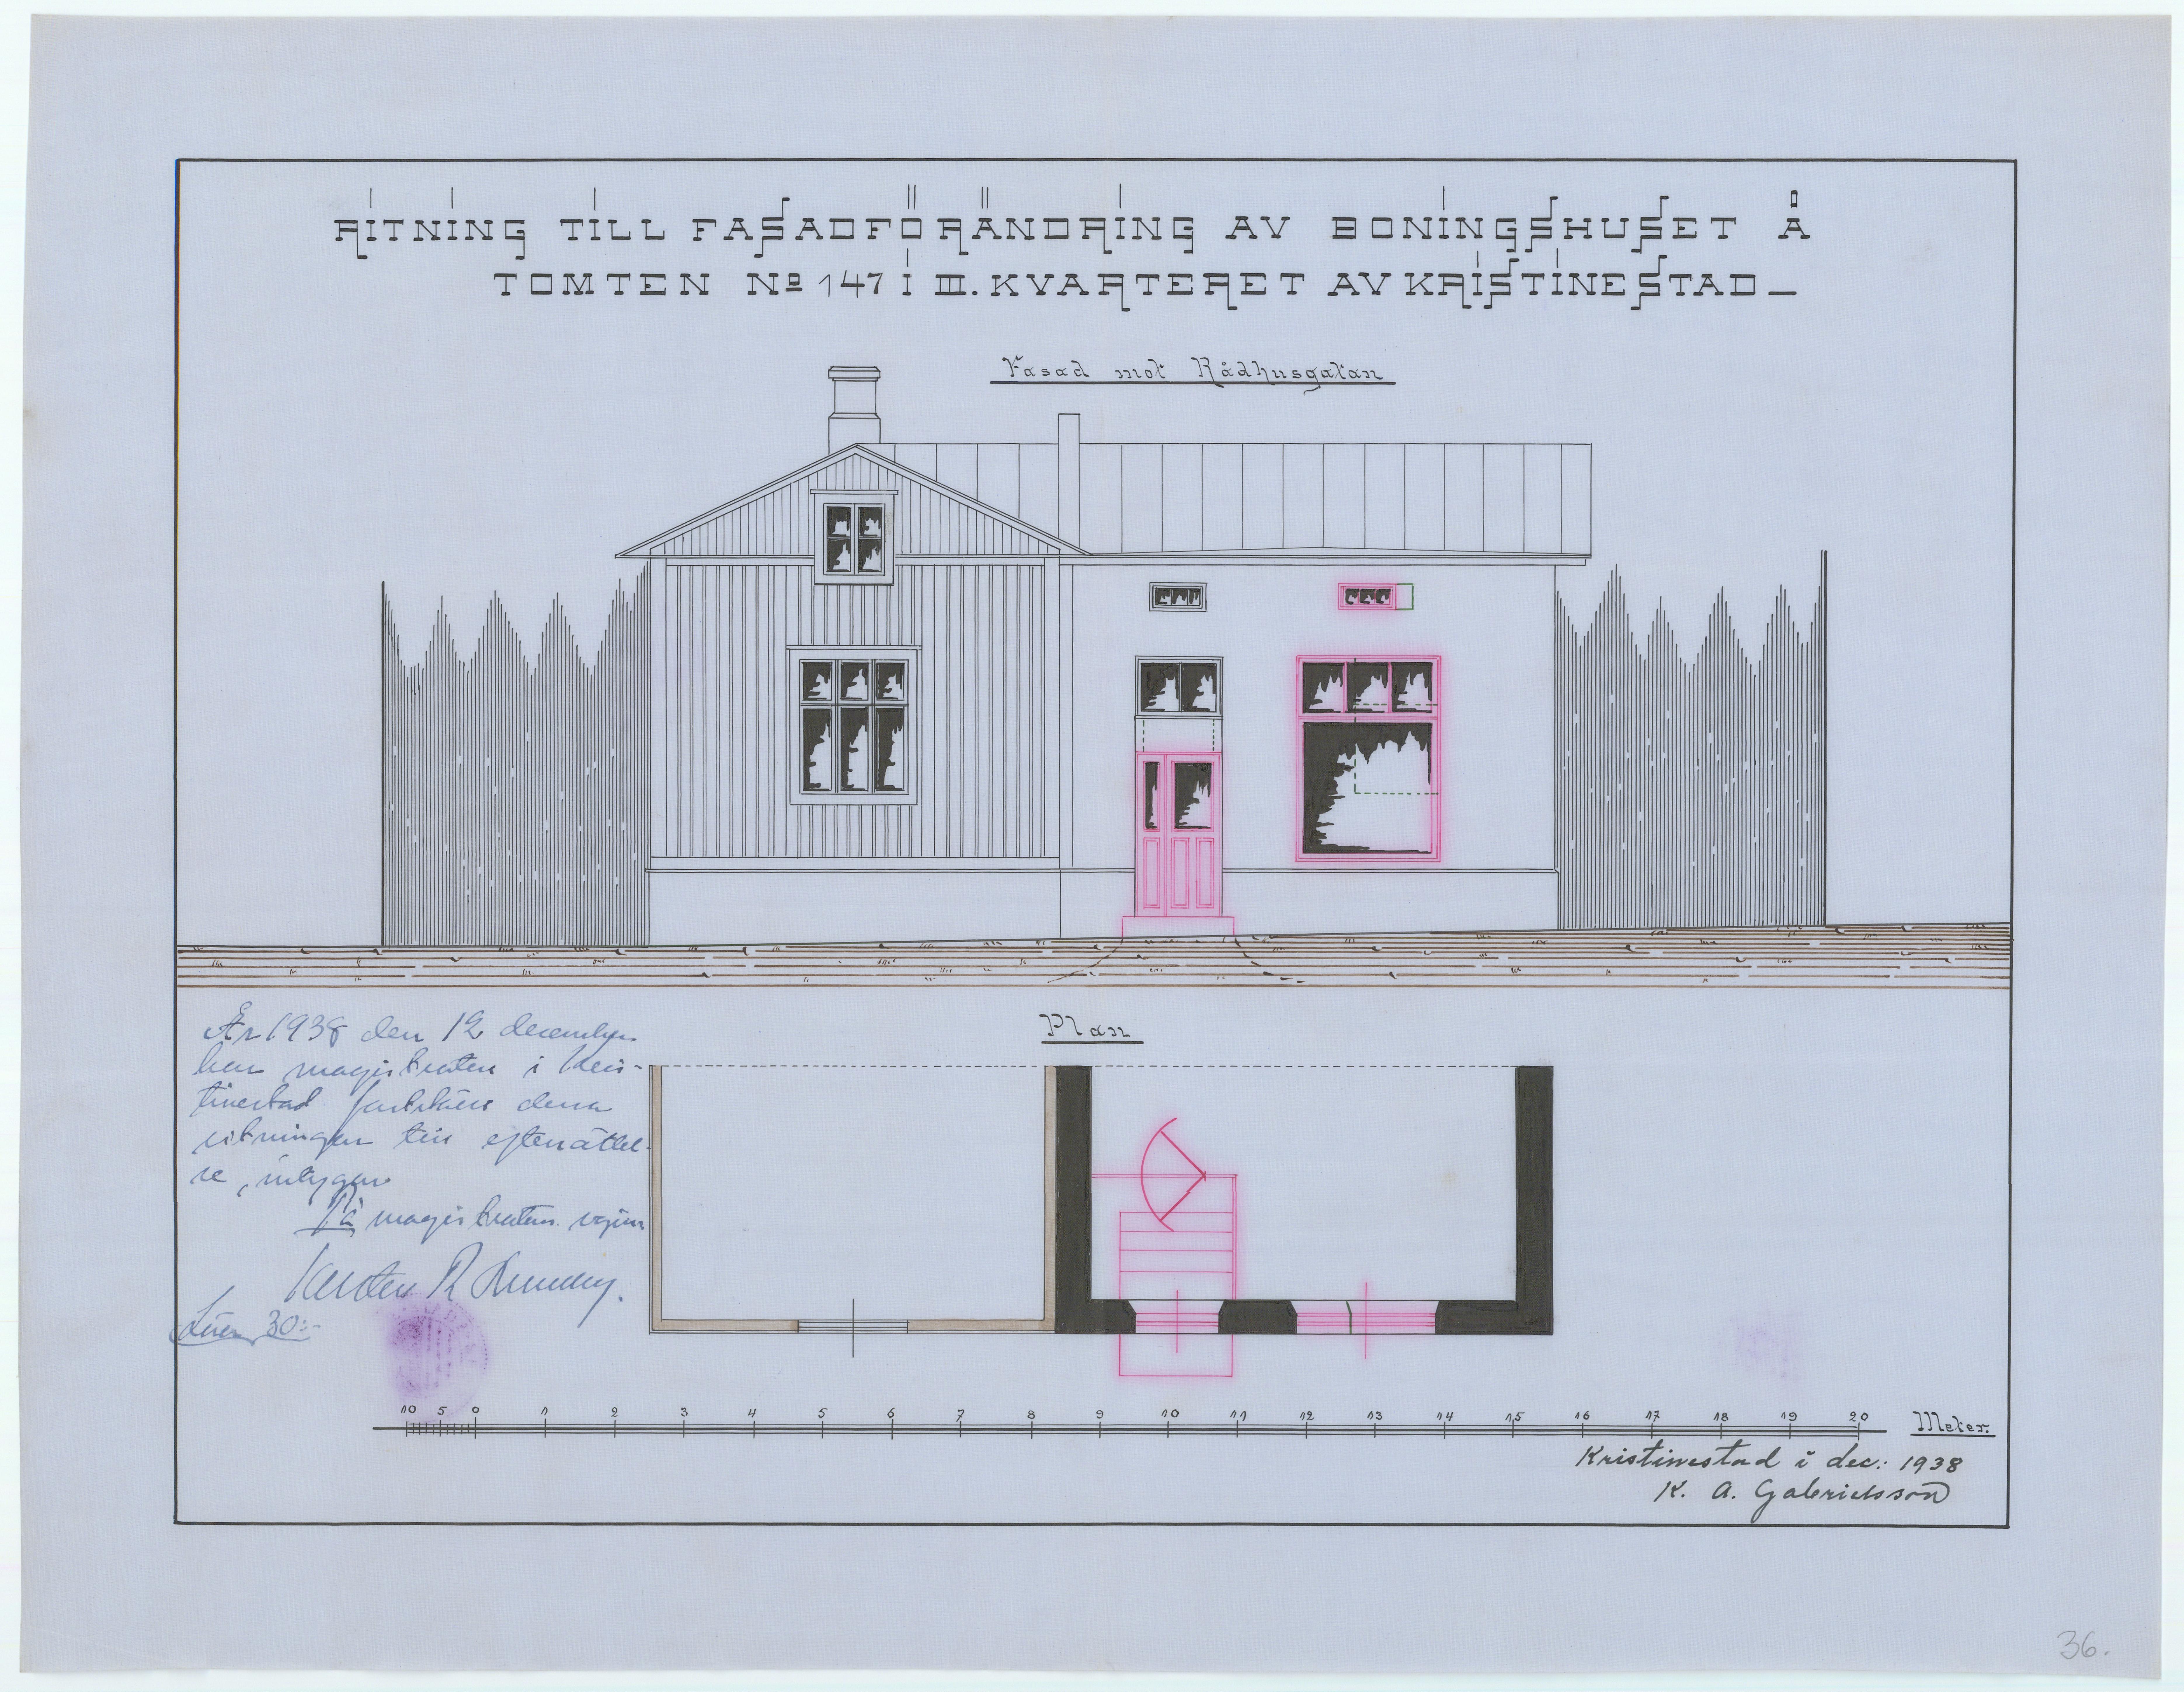 RITNING TILL FASADFÖRÄNDRING AV BONINGSHUSET Å
TOMTEN No 147 I III. KVARTERET AV KRISTINESTAD
Fasad mot Rådhusgatan
År 1938 den 12 december
har magistraten i Kris-
tinestad fastställt denna
ritningen till efterrättel-
se, intygar
På magistratens vägnar
Lösen 30:-
Plan
10 5 0 1 2 3 4 5 6 7 8 9 10 11 12 13 14 15 16 17 18 19 20 Meter.
Kristinestad i dec: 1938
K. A. Gabrielsson
36.